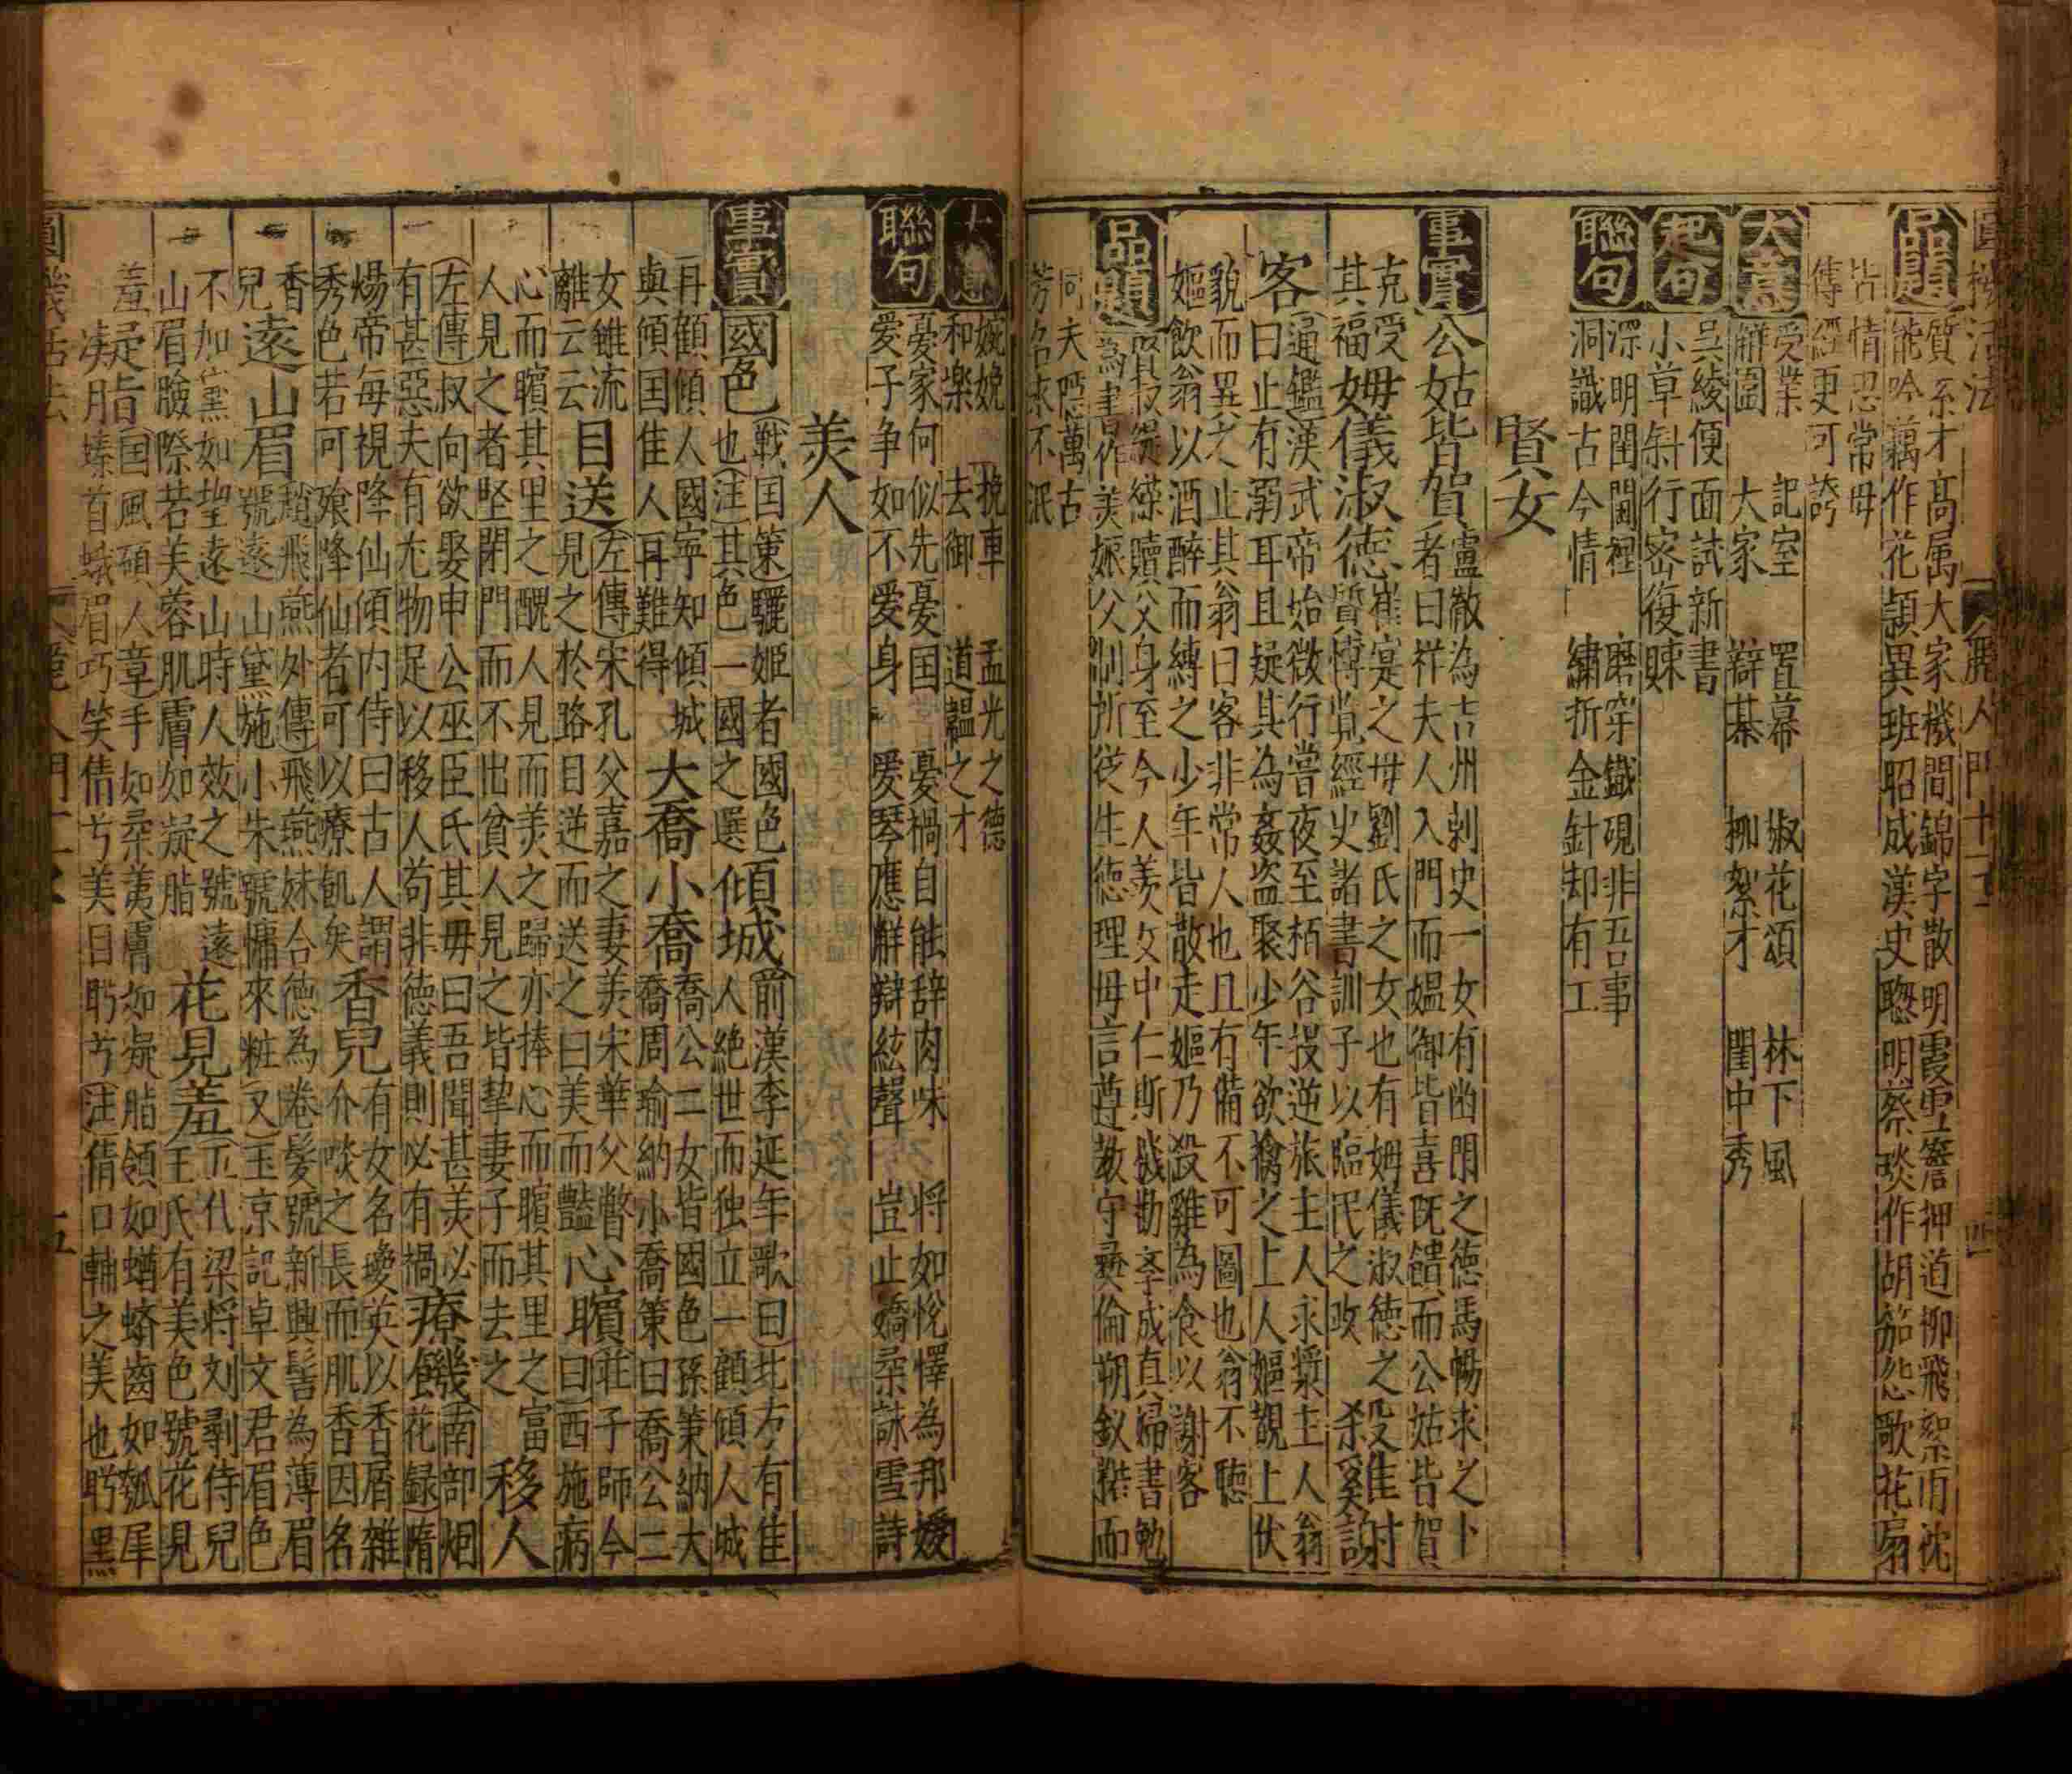 圓機活法
麗人門十二
四
品題
質系才高属大家機間錦字散明霞雪簷押道柳飛絮雨沈
能吟藕作花頴異班昭成漢史聦明蔡琰作胡笳怨歌花扇
情忍常毋
傳經更可誇
大意
受業 記室 置幕 椒花頌 林下風
解圍 大家 辯棊 柳絮才 閨中秀
起句
吳綾便面試新書
小草斜行密復踈
聯句
深明閨閫裡 磨穿鐵硯非吾事
洞識古今情 繡折金針却有工
賢女
事實
公姑皆賀
盧徹為吉州剌史一女有幽閒之德馬暢求之卜
者曰祥夫人入門而媪御皆喜既饋而公姑皆賀
姆儀淑德
克受
其福
崔寔之毋劉氏之女也有姆儀淑德之
質博覽經史諸書訓子以臨民之政
殺雞謝
客
通鑑漢武帝始微行嘗夜至栢谷投逆旅主人求漿主人翁
曰止有溺耳且疑其為姦盜聚少年欲擒之上人嫗覩上伏
貌而異之止其翁曰客非常人也且有備不可圖也翁不聽
嫗飲翁以酒醉而縛之少年皆散走嫗乃殺雞為食以謝客
品題
賢叔緹縈贖父身至今人羡女中仁斯機勸李成真婦書勉
為書作美娠父刖折從生德理毋言尊教守彞倫朔釵裙而
同夫隠萬古
芳名永不泯
大意
婉娩 挽車 孟光之德
和樂 去御 道韞之才
聯句
憂家何似先憂国 憂禍自能辞肉味 将如悅懌為邦媛
愛子争如不爱身 爱琴應觧辯絃聲 豈止嬌柔詠雪詩
美人
事實
國色
戰国策驪姬者國色
也注其色一國之選
傾城
前漢李延年歌曰北方有佳
人絶世而独立一顧傾人城
再顧傾人國寕知傾城
與傾国佳人再難得
大喬小喬
喬公二女皆國色孫策納大
喬周瑜納小喬策曰喬公二
女雖流
離云云
目送
左傳宋孔父嘉之妻美宋華父瞥
見之於路目逆而送之曰美而豔
心臏
莊子師今
曰西施病
心而臏其里之醜人見而美之歸亦捧心而臏其里之富
人見之者堅閉門而不出貧人見之皆挚妻子而去之
移人
左傳叔向欲娶申公巫臣氏其毋曰吾聞甚美必
有甚惡夫有尤物足以移人苟非德義則必有禍
療饑
南部烟
花録隋
煬帝每視降仙傾内侍曰古人謂
秀色若可飱降仙者可以療飢矣
香兒
有女名瓊英以香屑雜
介啖之長而肌香因名
香
兒
遠山眉
趙飛燕外傳飛燕妹合德為卷髮號新興髻為薄眉
號遠山黛施小朱號慵來粧又玉京記卓文君眉色
不加黛如望遠山時人效之號遠
山眉臉際若芙蓉肌膚如凝脂
花見羞
五代梁将刘鄩侍兒
王氏有美色號花見
羞
凝脂
国風碩人章手如柔荑膚如凝脂領如蝤蠐齒如瓠犀
螓首蛾眉巧笑倩兮美目盼兮注倩口輔之美也盼黒
圓機活法
五